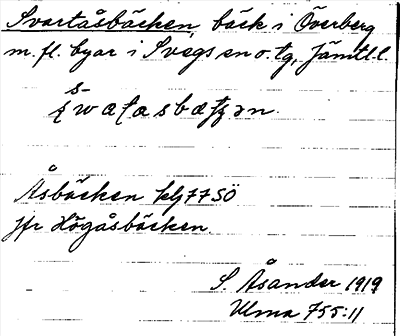 Svartåsbäcken, bäck i Överberg
m. fl. byar i Svegs sn o. tg, Jämtl. l.
Åsbäcken klj 77 SÖ
jfr Högåsbäcken
S. Åsander 1919
Ulma 755:11